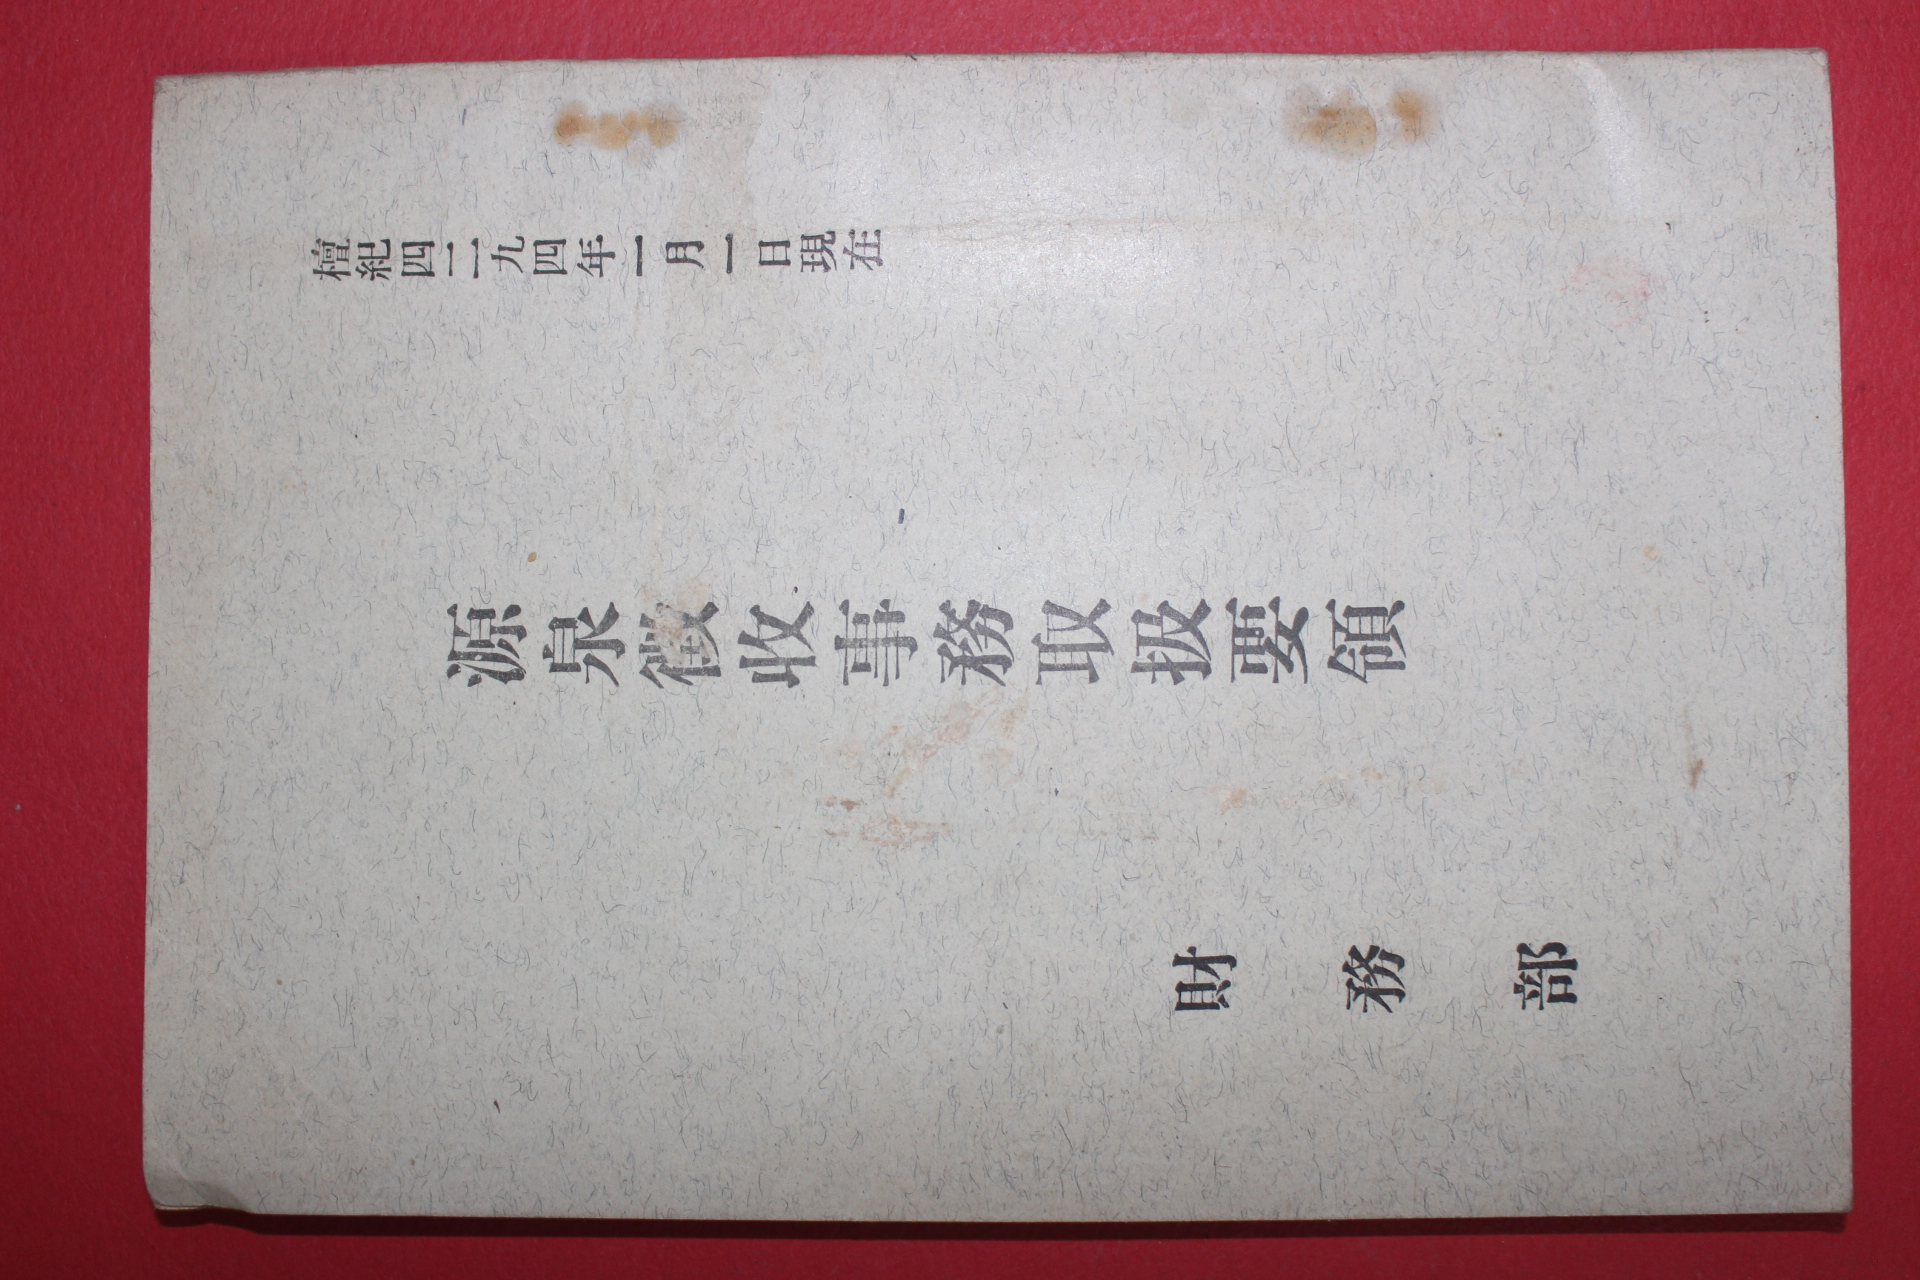 檀紀四二九四年一月一日現在
源泉徵收事務取扱要領
財務部